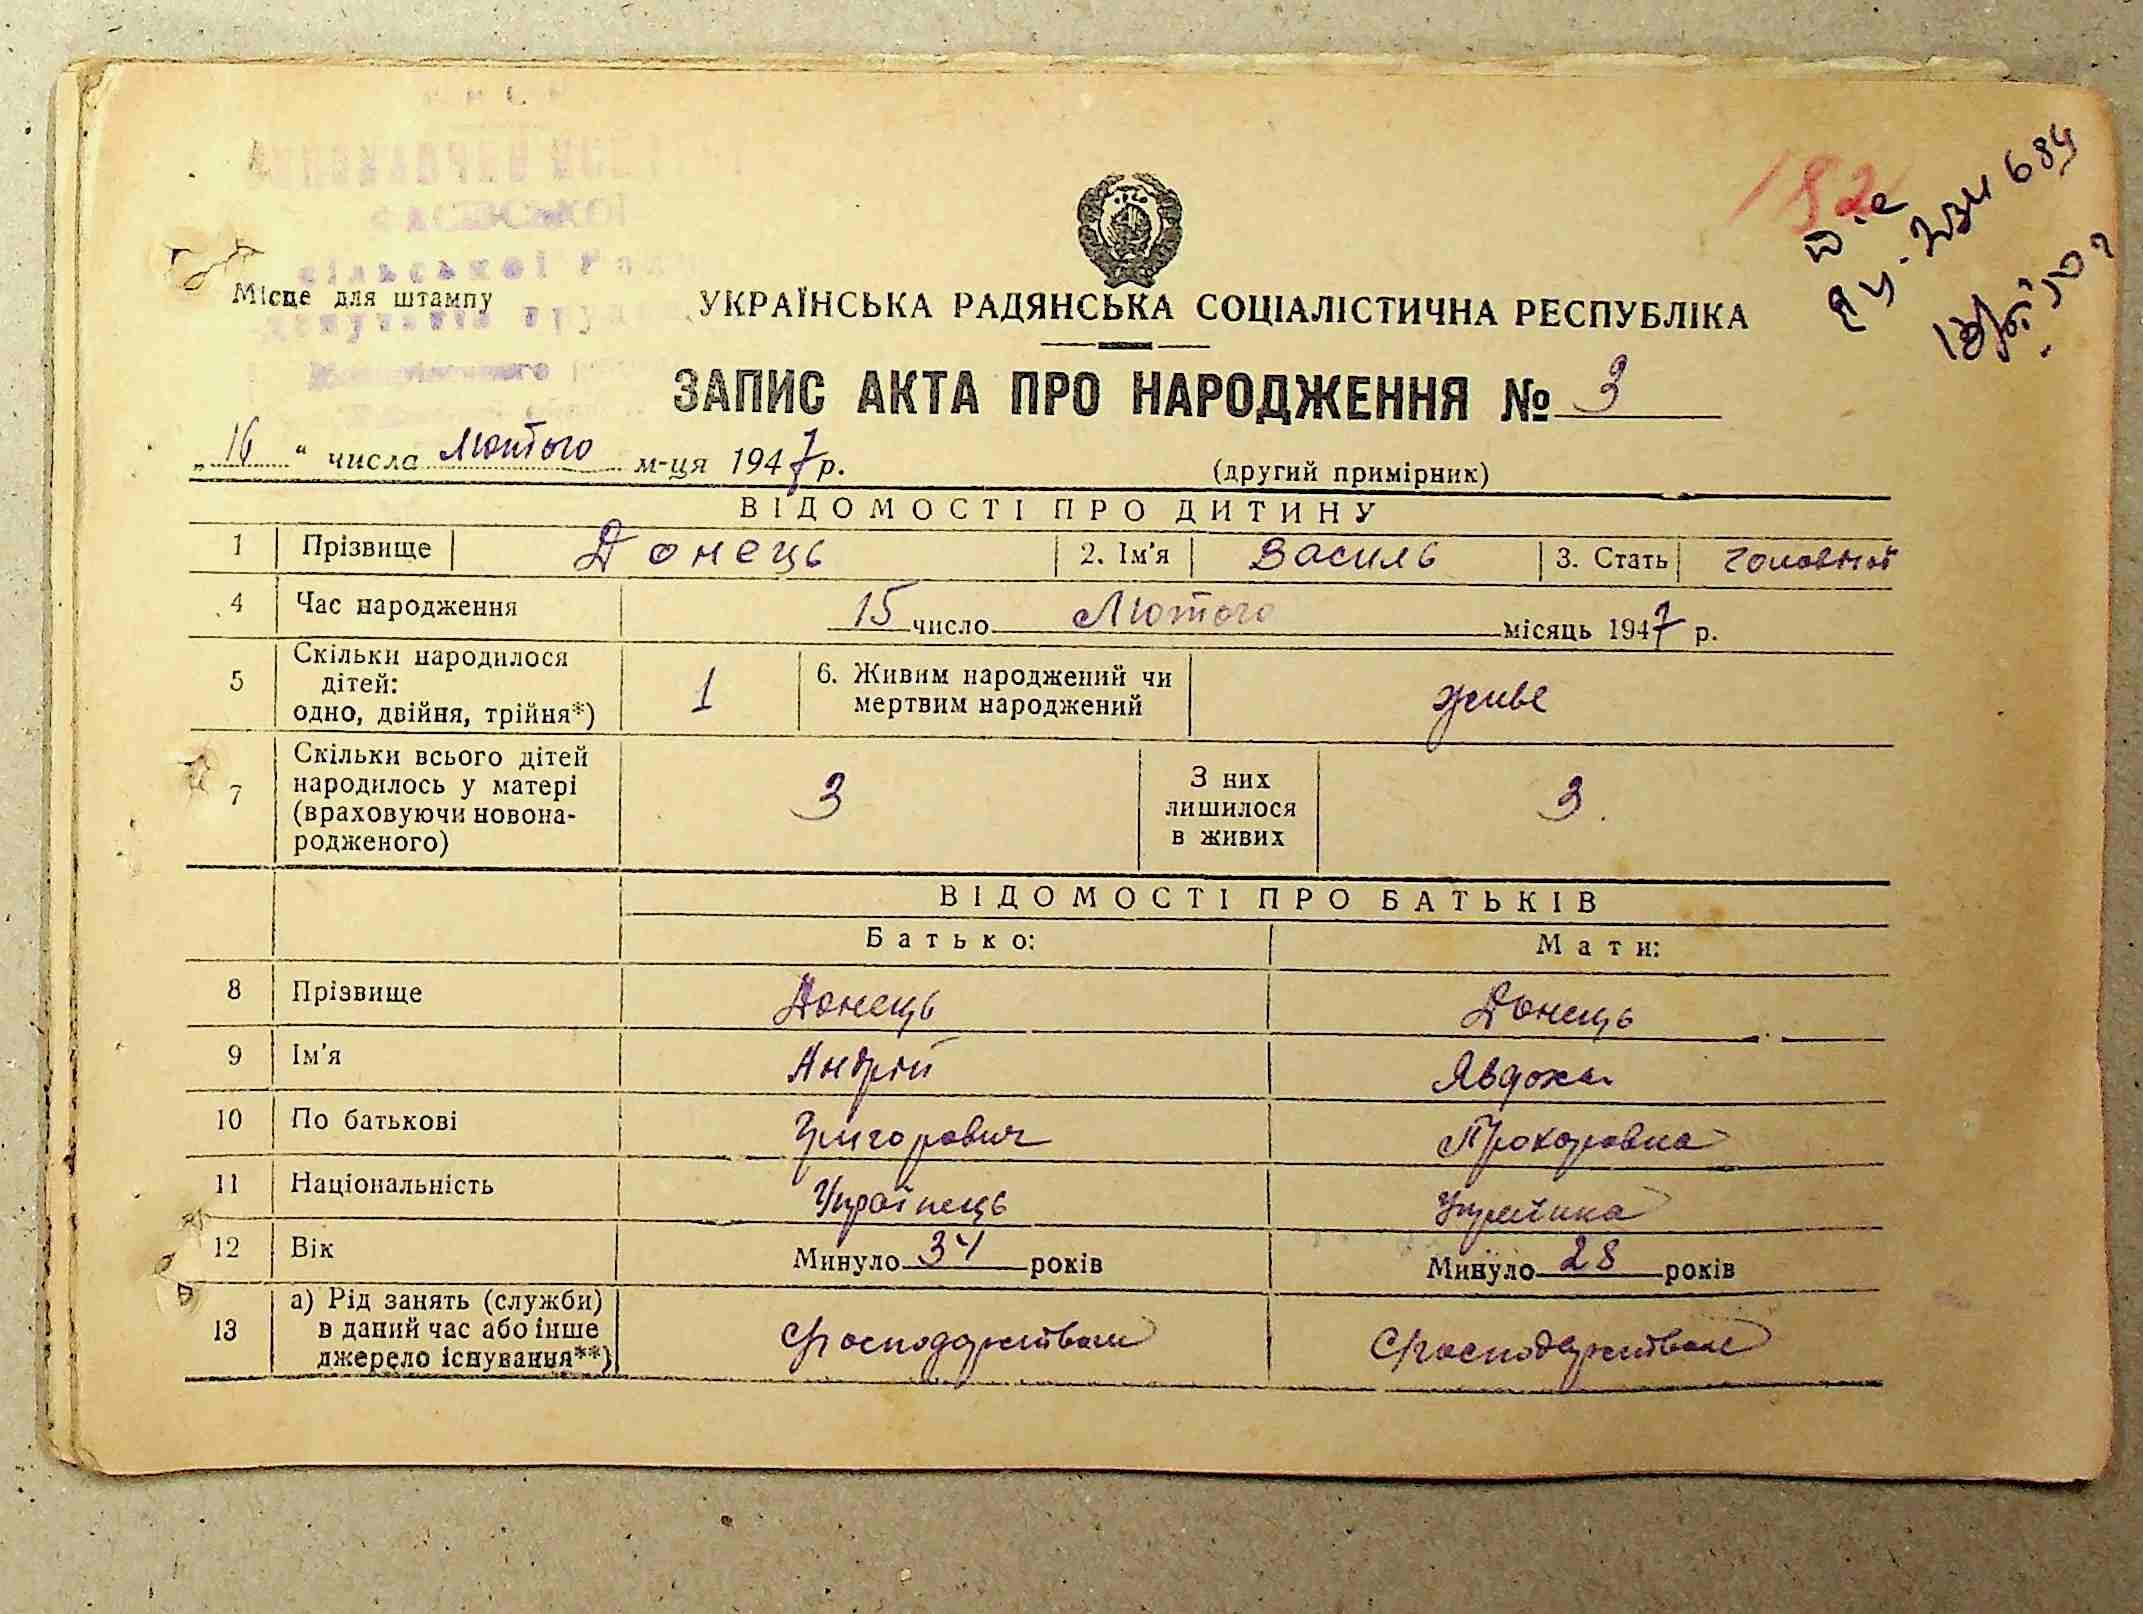 182
сільської Рад
Місце для штампу
УКРАЇНСЬКА РАДЯНСЬКА СОЦІАЛІСТИЧНА РЕСПУБЛІКА
ЗАПИС АКТА ПРО НАРОДЖЕННЯ № 3
„16“ числа Лютого м-ця 1947 р.
(другий примірник)
ВІДОМОСТІ ПРО ДИТИНУ
1 Прізвище Донець 2. Ім'я Василь 3. Стать
4 Час народження 15 число Лютого місяць 1947 р.
5 Скільки народилося дітей: одно, двійня, трійня*) 1 6. Живим народжений чи мертвим народжений живе
7 Скільки всього дітей народилось у матері (враховуючи новонародженого) 3 З них лишилося в живих 3.
ВІДОМОСТІ ПРО БАТЬКІВ
Батько: Мати:
8 Прізвище Донець Донець
9 Ім'я Андрій Явдоха
10 По батькові Григорович Прохоровна
11 Національність Українець Українка
12 Вік Минуло 34 років Минуло 28 років
13 а) Рід занять (служби) в даний час або інше джерело існування**)